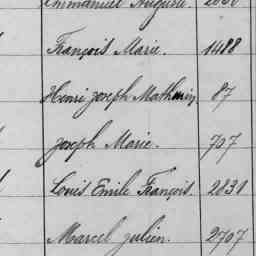 Emmanuel Auguste. 2030
François Marie. 1488
Henri Joseph Mathurin. 87
Joseph Marie. 707
Louis Emile François. 2831
Marcel Julien. 2707